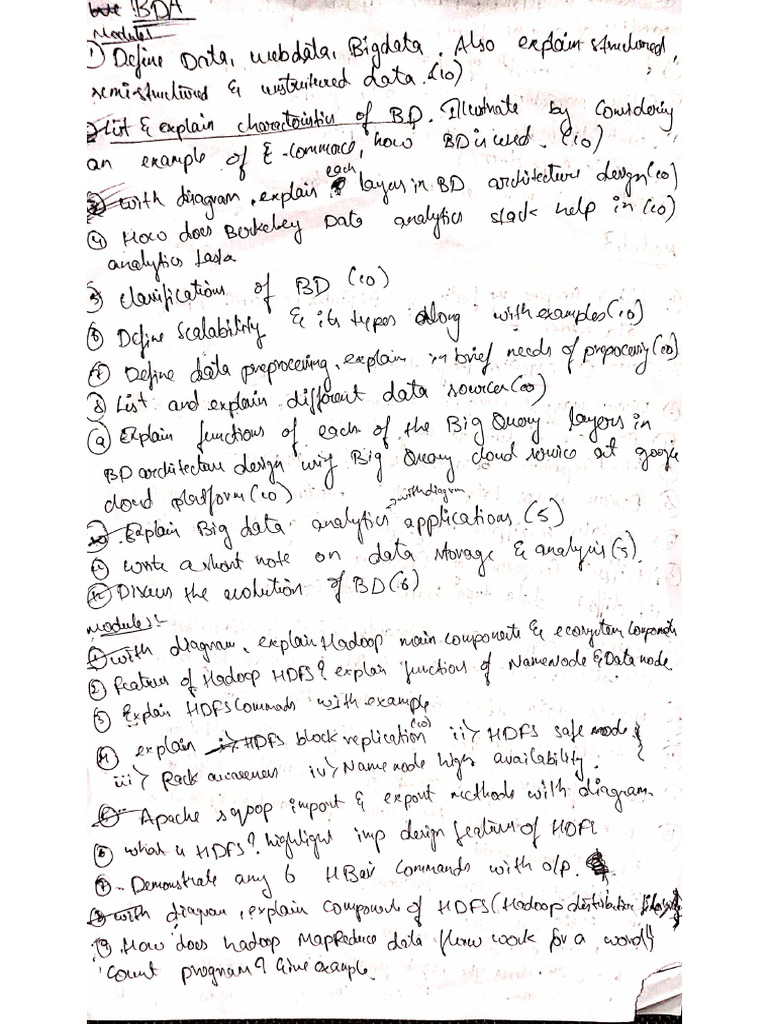 BDA
Module 1
1) Define Data, webdata, Bigdata. Also explain structured,
semi-structured & unstructured data. (10)
2) List & explain characteristics of BD. Illustrate by Considering
an example of E-commerce, how BD is used. (10)
3) with diagram, explain each layers in BD architecture design (10)
4) How does Berkeley Data analytics stack help in (10)
analytics task
5) classifications of BD (10)
6) Define Scalability & its types along with examples (10)
7) Define data preprocessing, explain in brief needs of prepocessing (10)
8) List and explain different data sources (10)
9) Explain functions of each of the Big Query layers in
BD architecture design Big Query cloud service at google
cloud platform (10)
10) Explain Big data analytics applications with diagram (5)
11) write a short note on data storage & analysis (5).
12) Discuss the evolution of BD (6)
Module 2:-
1) with diagram, explain Hadoop main components & ecosystem components
2) features of Hadoop HDFS? explain functions of NameNode & Data node
3) Explain HDFS Commads with example
4) explain i) HDFS block replication (10) ii) HDFS safe mode
iii) Rack awareness iv) Name node high availability.
5) Apache sqoop import & export methods with diagram
6) what is HDFS? highlight imp design features of HDFS
7) Demonstrate any 6 HBase Commands with o/p.
8) with diagram, explain components of HDFS (Hadoop distribution
9) How does hadoop MapReduce data flow work for a word
Count program? Give example.